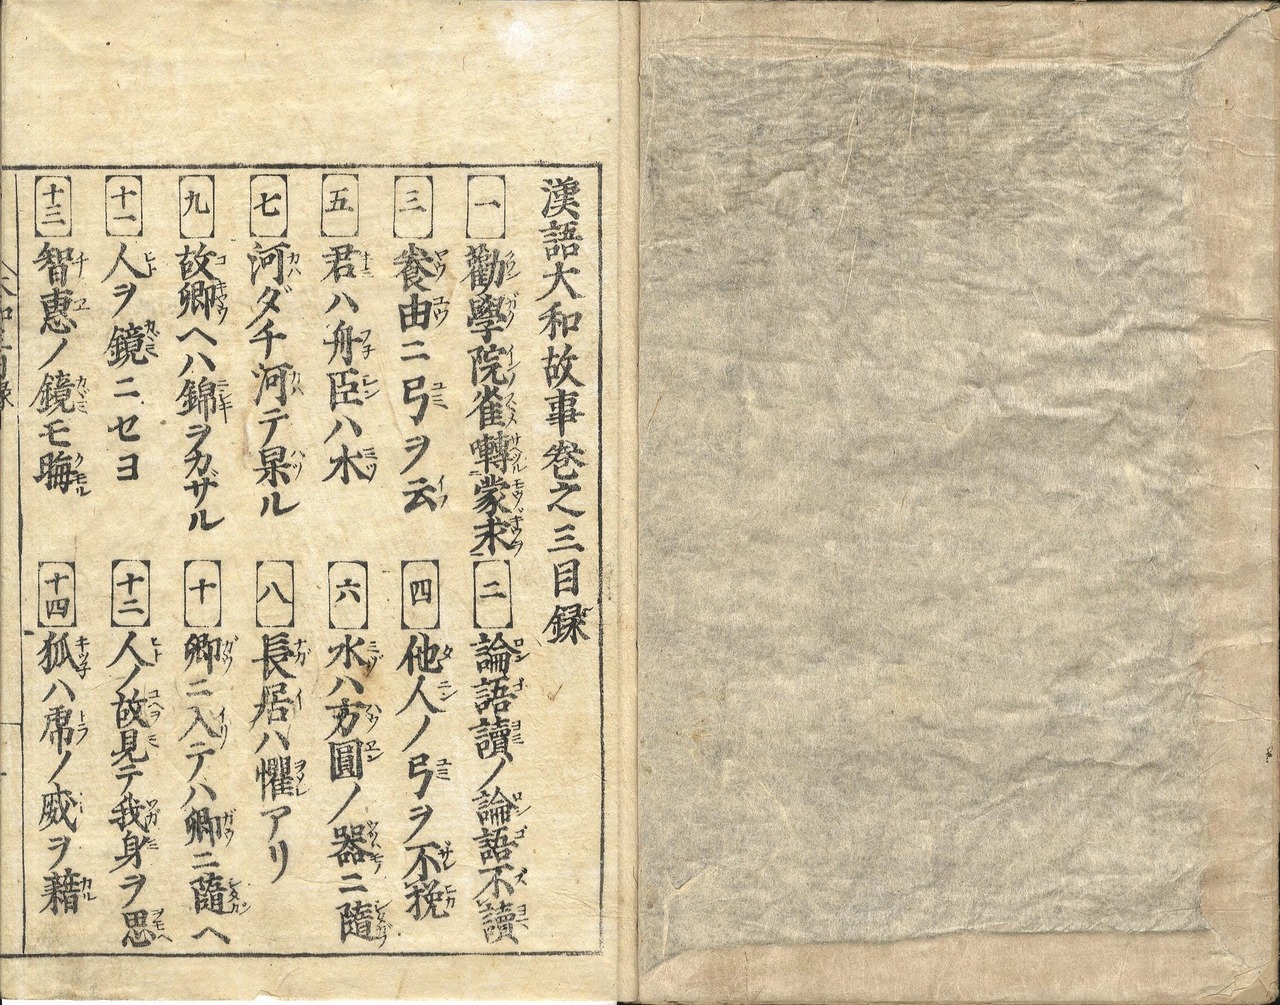 漢語大和故事巻之三目録
一 勸學院雀囀蒙求
二 論語讀ノ論語不讀
三 養由ニ弓ヲ云
四 他人ノ弓ヲ不挽
五 君ハ舟臣ハ水
六 水ハ方圓ノ器ニ隨
七 河ダチ河テ果ル
八 長居ハ懼アリ
九 故郷ヘハ錦ヲカザル
十 郷ニ入テハ郷ニ隨ヘ
十一 人ヲ鏡ニセヨ
十二 人ノ故見テ我身ヲ思
十三 智惠ノ鏡モ晦
十四 狐ハ虎ノ威ヲ藉